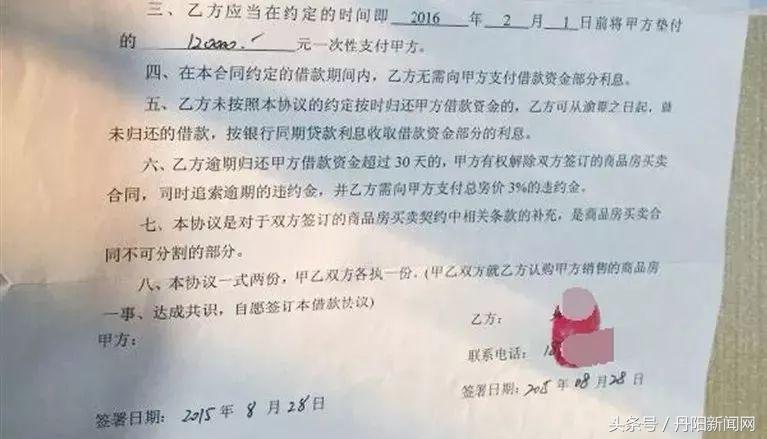 三、乙方应当在约定的时间即 2016 年 2 月 1 日前将甲方垫付
的 12000.- 元一次性支付甲方。
四、在本合同约定的借款期间内，乙方无需向甲方支付借款资金部分利息。
五、乙方未按照本协议的约定按时归还甲方借款资金的，乙方可从逾期之日起，就
未归还的借款，按银行同期贷款利息收取借款资金部分的利息。
六、乙方逾期归还甲方借款资金超过 30 天的，甲方有权解除双方签订的商品房买卖
合同，同时追索逾期的违约金，并乙方需向甲方支付总房价 3%的违约金。
七、本协议是对于双方签订的商品房买卖契约中相关条款的补充，是商品房买卖合
同不可分割的部分。
八、本协议一式两份，甲乙双方各执一份。(甲乙双方就乙方认购甲方销售的商品房
一事、达成共识，自愿签订本借款协议)
甲方：
乙方：
联系电话：18
签署日期：2015 年 8 月 28 日
签署日期：2015 年 08 月 28 日
头条号 / 丹阳新闻网